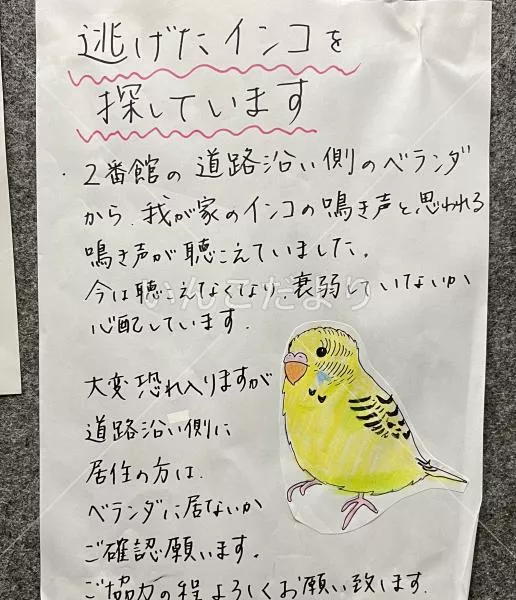 逃げたインコを
探しています
・2番館の道路沿い側のベランダ
から、我が家のインコの鳴き声と思われる
鳴き声が聴こえていました。
今は聴こえなくなり、衰弱していないか
心配しています。
大変恐れ入りますが
道路沿い側に
居住の方は、
ベランダに居ないか
ご確認願います。
ご協力の程よろしくお願い致します。
いんこだより